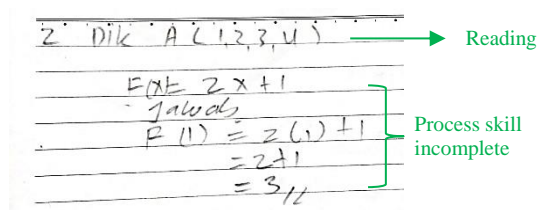 2 Dik A ( 1, 2, 3, 4 ) Reading
F(x)= 2x+1
Jawab
F (1) = 2(1) +1
= 2+1
= 3,,
Process skill
incomplete